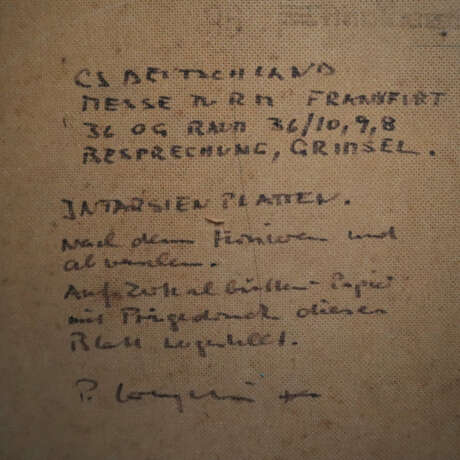 CS DEUTSCHLAND
MESSE TURM FRANKFURT
36 OG RAUM 36/10,9,8
BESPRECHUNG, GRIMSEL.
INTARSIEN PLATTEN.
Nach dem und
abwalzen.
Auf Zerkalbütten-Papier
mit Prägedruck dieses
Blatt
P.